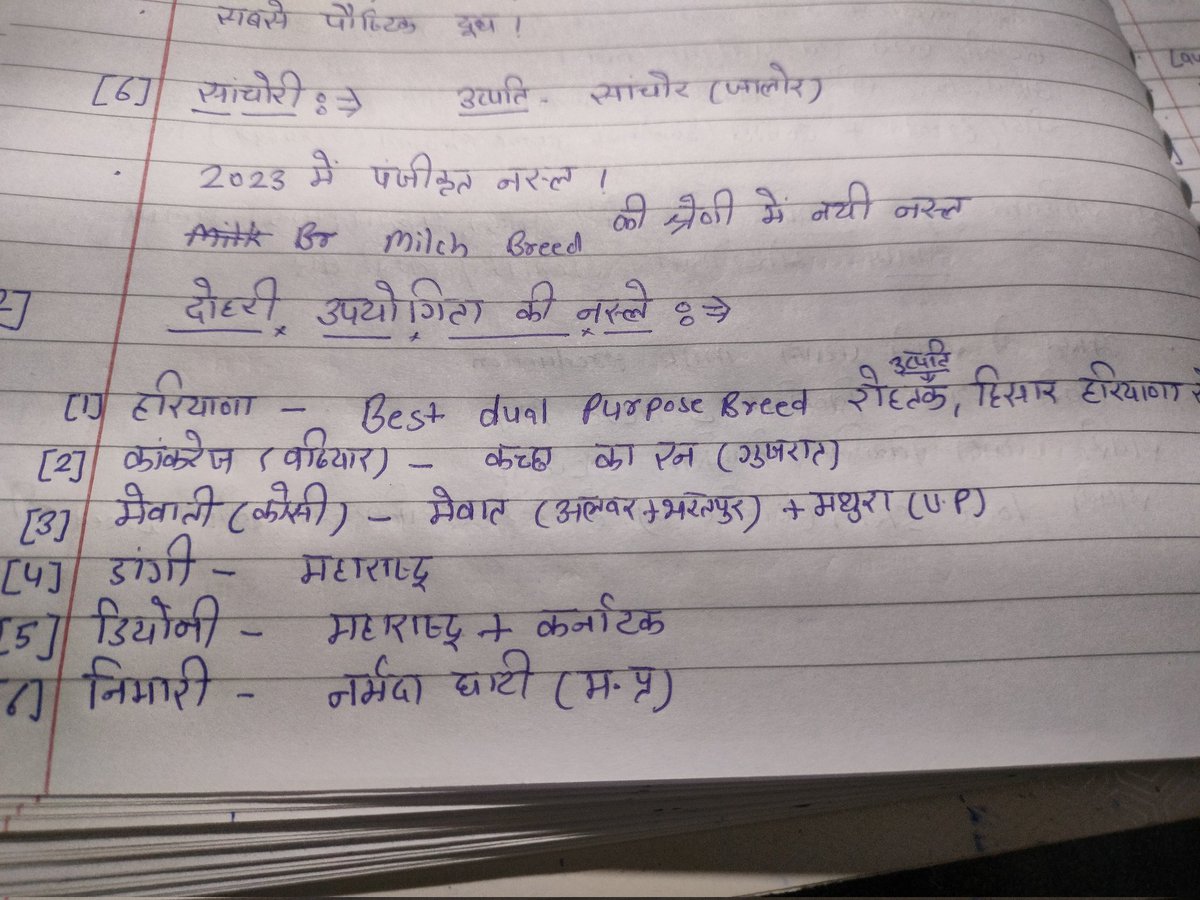 सबसे पौष्टिक दूध ।
[6] सांचोरी :⇒ उत्पति - सांचौर (जालोर)
2023 में पंजीकृत नस्ल ।
Milch Breed की श्रेणी में नयी नस्ल
2] दोहरी उपयोगिता की नस्ले :⇒
उत्पति
[1] हरियाणा - Best dual Purpose Breed रोहतक, हिसार हरियाणा से
[2] कांकरेज (वढियार) - कच्छ का रन (गुजरात)
[3] मेवाती (कोसी) - मेवात (अलवर+भरतपुर) + मथुरा (U.P)
[4] डांगी - महाराष्ट्र
[5] डियोनी - महाराष्ट्र + कर्नाटक
निमारी - नर्मदा घाटी (म.प्र)